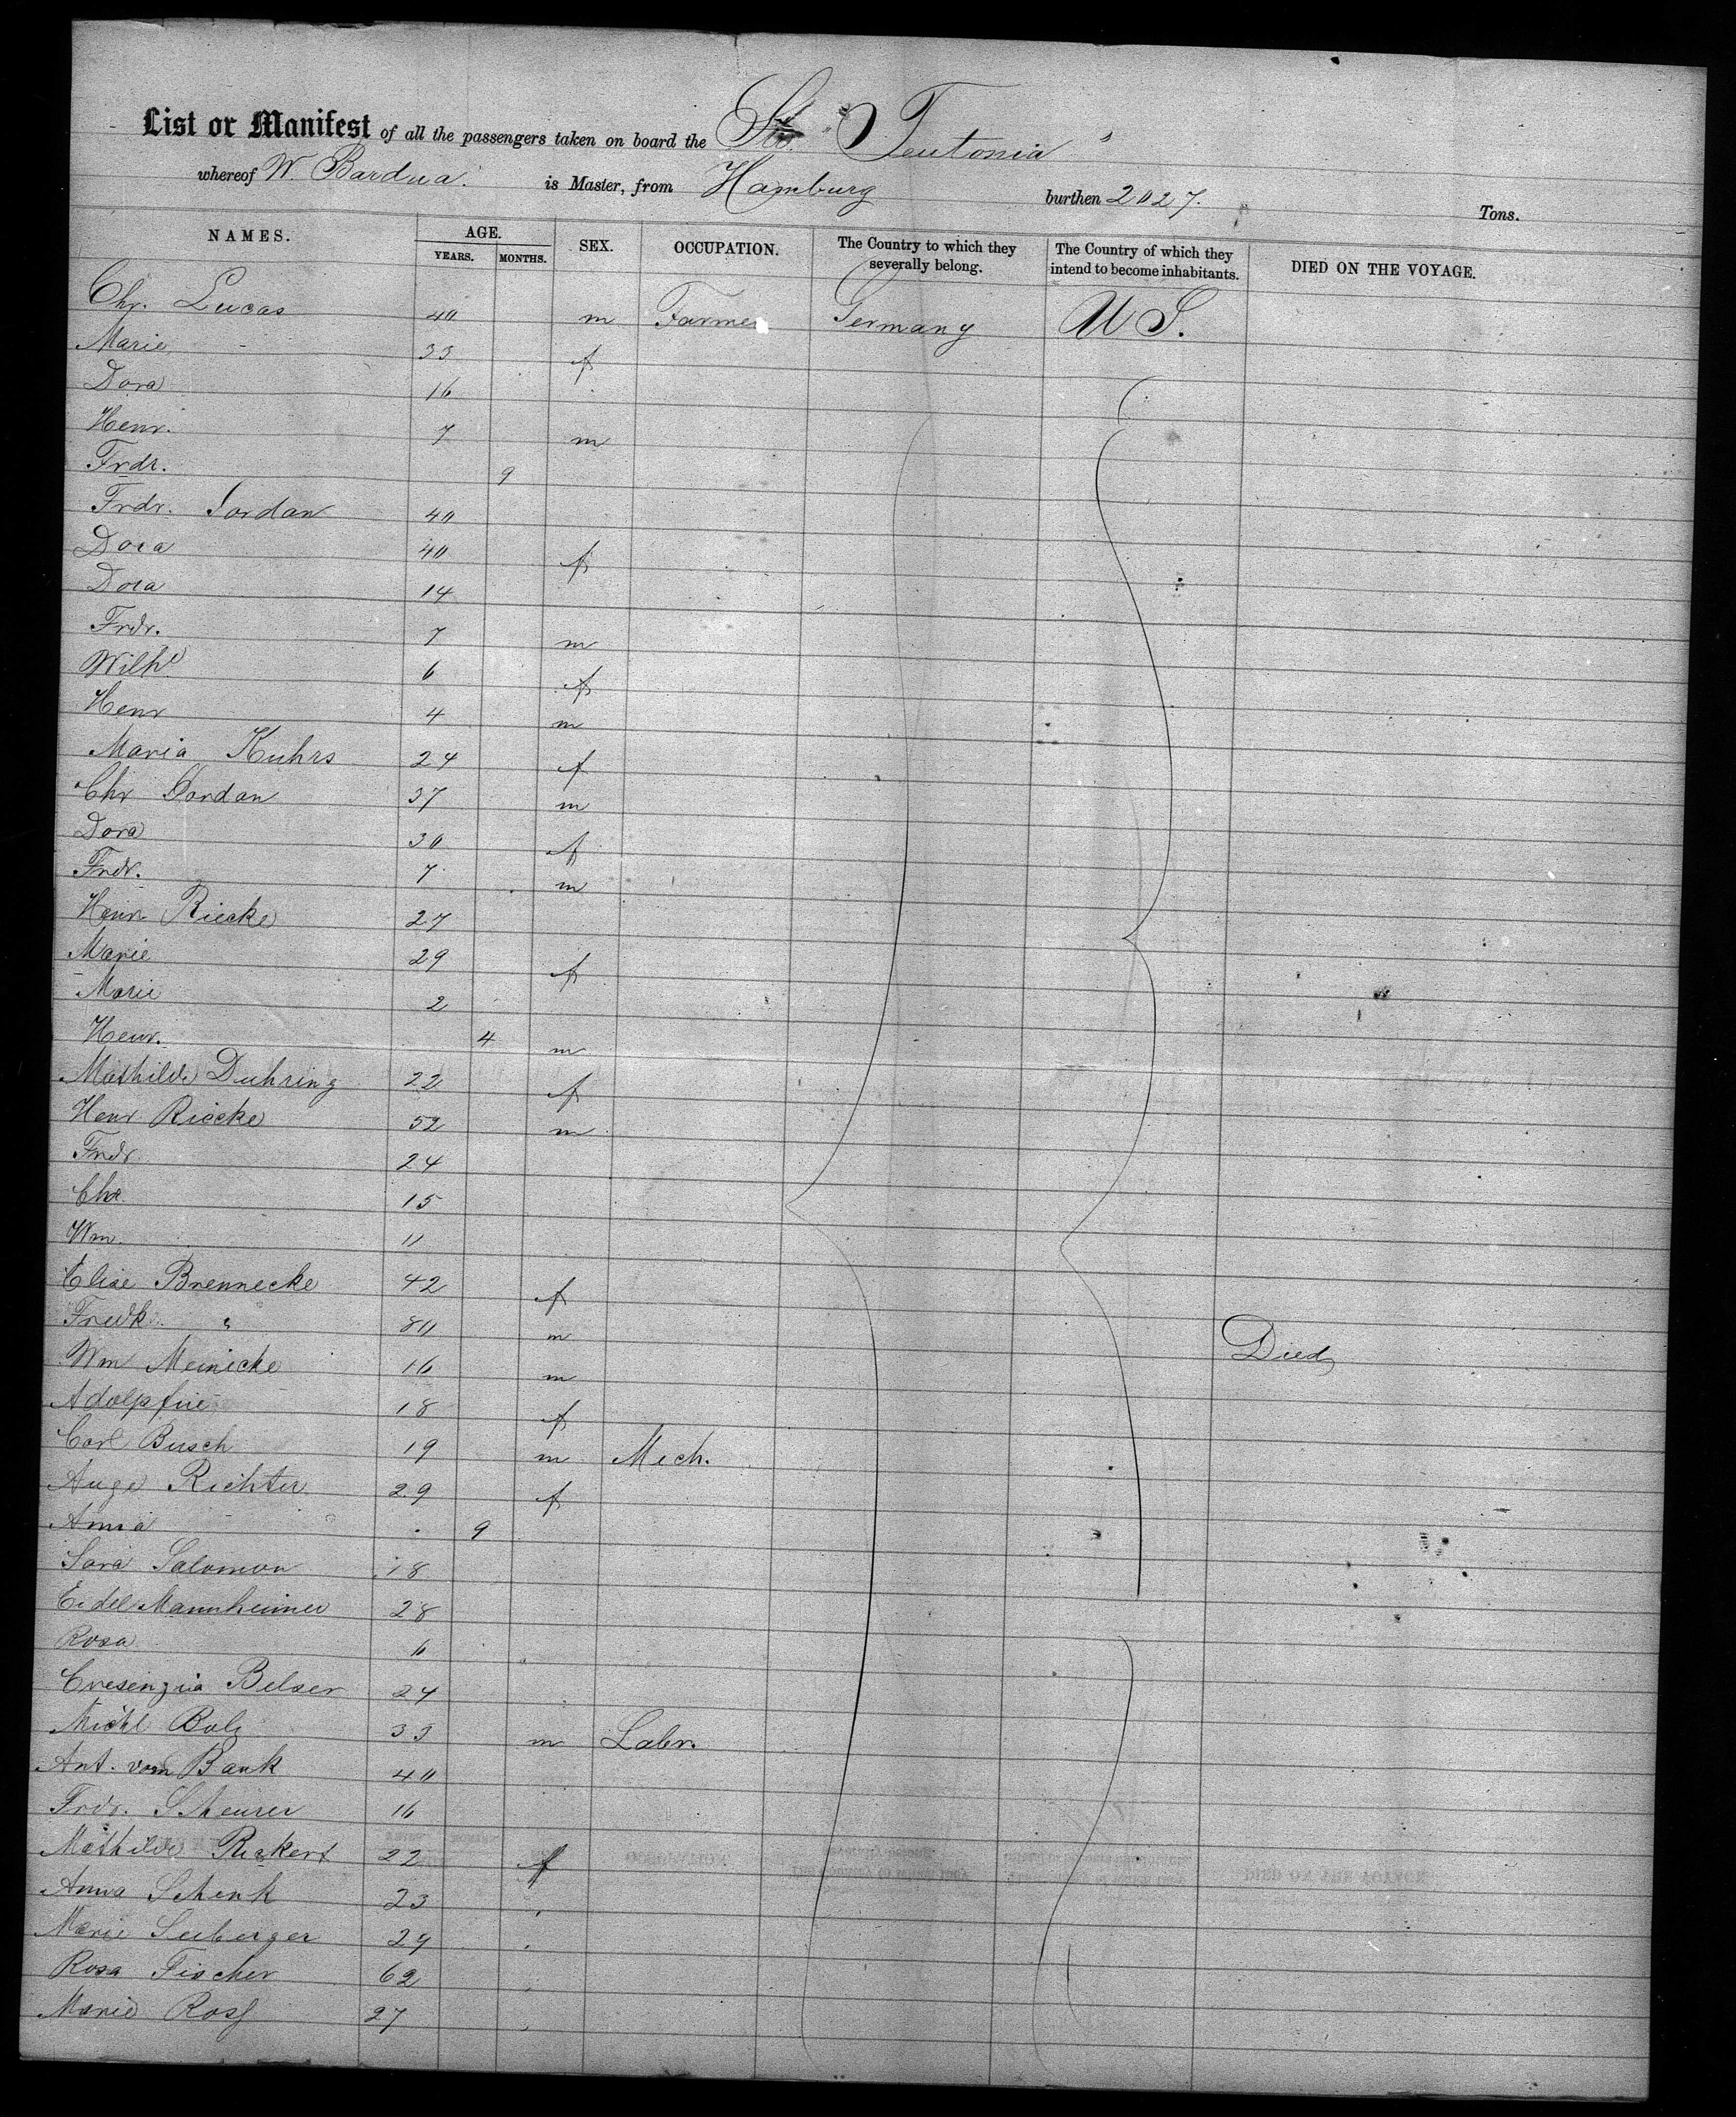 List or Manifest of all the passengers taken on board the Str. "Teutonia"
whereof W. Bardua. is Master, from Hamburg burthen 2027. Tons.
NAMES. AGE. YEARS. MONTHS. SEX. OCCUPATION. The Country to which they severally belong. The Country of which they intend to become inhabitants. DIED ON THE VOYAGE.
Chr. Lucas 40 m Farmer Germany U S.
Marie 33 f
Dora 16
Henr. 7 m
Frdr. 9
Frdr. Jordan 40
Dora 40 f
Dora 14
Frdr. 7 m
Wilhe 6 f
Henr 4 m
Maria Kuhrs 24 f
Chr Jordan 37 m
Dora 30 f
Frdr. 7 m
Henr Riecke 27
Marie 29 f
Marie 2
Henr. 4 m
Mathilde Duhring 22 f
Henr Riecke 52 m
Frdr 24
Chr. 15
Wm. 11
Elise Brennecke 42 f
Fredk " 80 m Died
Wm Meinicke 16 m
Adolpfine 18 f
Carl Busch 19 m Mech.
Auge Richter 29 f
Anna 9
Sara Salomon 18
Eidel Mannheimer 28
Rosa 6
Cresenzia Belser 24
Michl 33 m Labr.
Ant. vom Bank 40
Frdr. Scheurer 16
Mathilde Rickert 22 f
Anna Schenk 23
Marie Seeberger 29
Rosa Fischer 62
Marie Ross 27